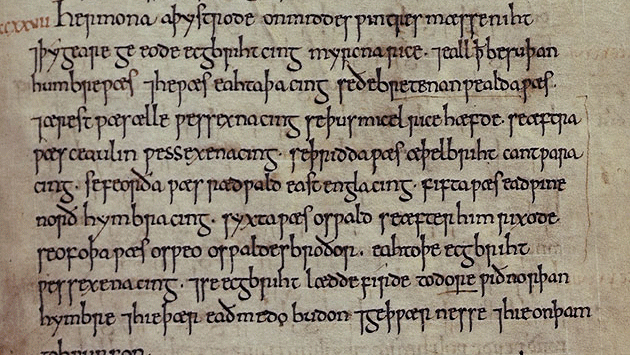 ccxxvii Her mona aþystrode on middes ƿintres mæsseniht
⁊ þy geare ge eode ecgbriht cing myrcna rice · ⁊ eall ꝥ be suþan
humbre ƿæs ⁊ he ƿæs eahtaþa cing se ðe bretenanƿealda ƿæs ·
⁊ ærest ƿæs ælle ƿessexna cing se þus micel rice hæfde · se æftra
ƿæs ceaulin ƿessexena cing · se þridda ƿæs æþelbriht cantƿara
cing · se feorða ƿæs rædƿald east engla cing · fifta ƿæs eadƿine
norð hymbra cing · syxta ƿæs osƿald se æfter him rixode
seofoþa ƿæs osƿeo osƿaldes broðor · eahtoþe ecgbriht
ƿessexena cing · ⁊ se ecgbriht lædde firde to dore ƿið norþan
hymbre ⁊ hie þær eaðmedo budon ⁊ geþƿær nesse ⁊ hie on þam